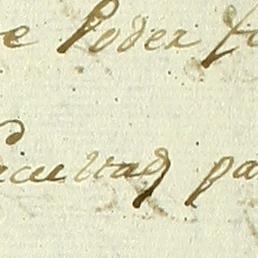 e Poder
facultad pa